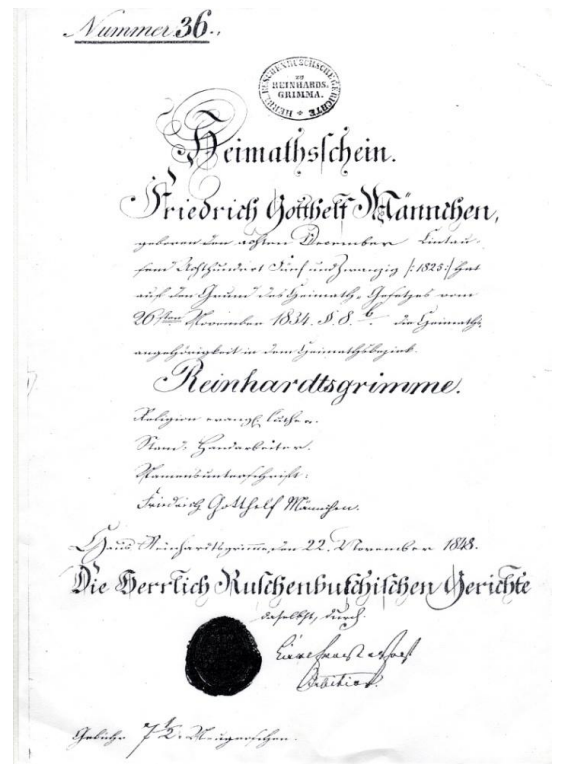 Nummer 36.,
HERRL. RUSCHENBUSCHSCHE GERICHTE
ZU
REINHARDS.
GRIMMA.
Heimathsschein.
Friedrich Gotthelf Männchen,
geboren den achten December Eintau-
send Achthundert Fünf und Zwanzig /:1825:/ hat
auf den Grund des Heimath-Gesetzes vom
26sten November 1834. §. 8. b. die Heimaths-
angehörigkeit in dem Heimathsbezirk
Reinhardtsgrimme.
Religion evangl. luther.
Stand: Handarbeiter.
Namensunterschrift:
Friedrich Gotthelf Männchen.
Haus Reinhardtsgrimme, den 22. November 1848.
Die Herrlich Ruschenbuschischen Gerichte
daselbst, durch
Gebühr 7½ Neugroschen.